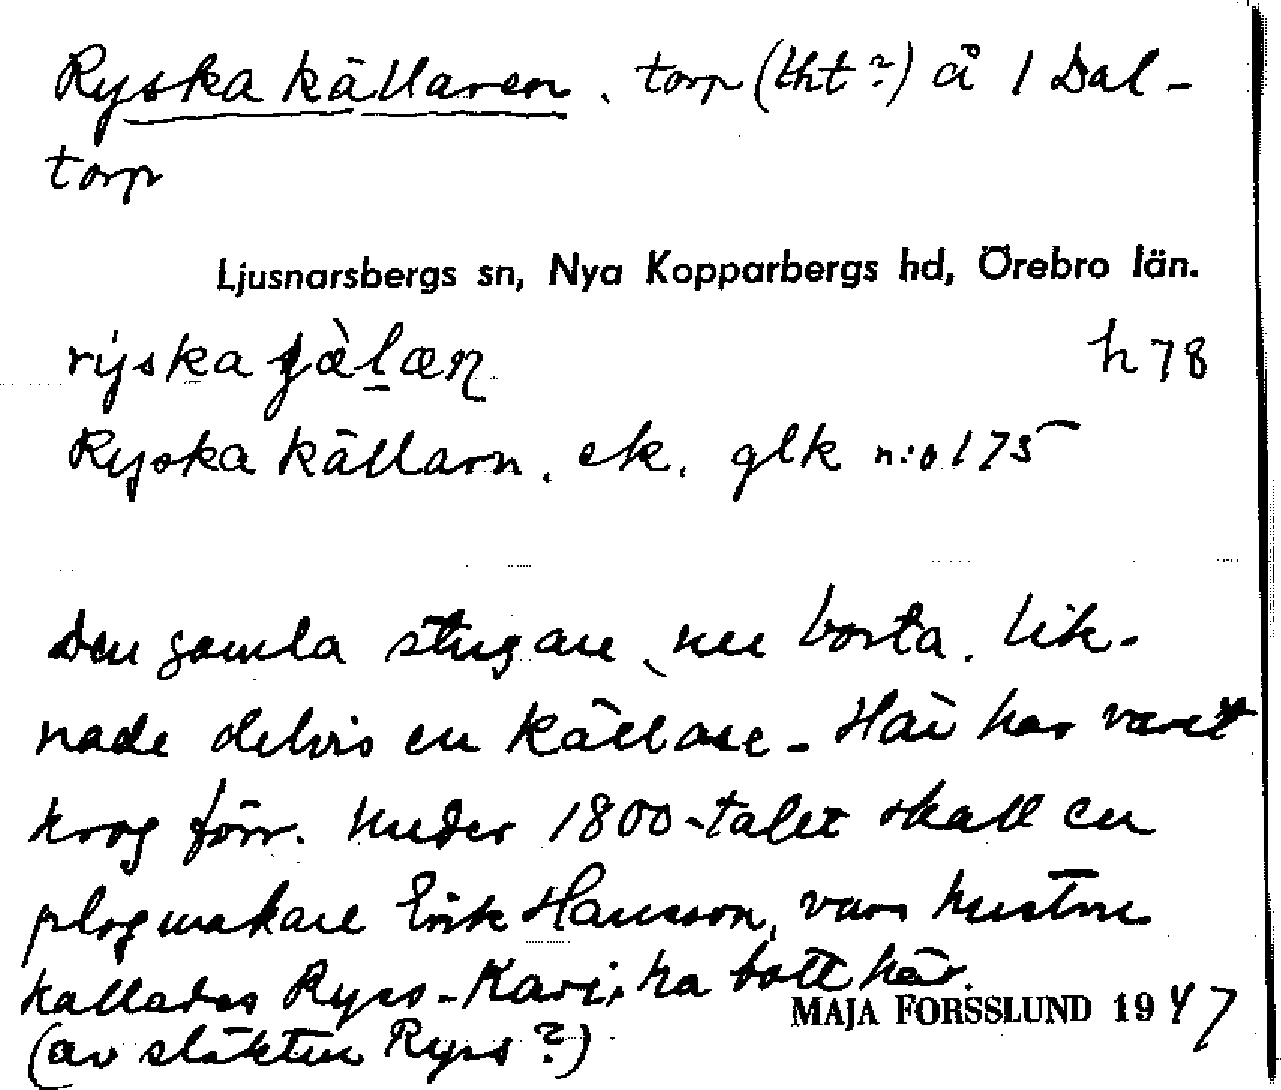 Ryska källaren. torp (lht?) å 1 Dal-
torp
Ljusnarsbergs sn, Nya Kopparbergs hd, Örebro län.
h 78
Ryska källarn. ek. glk n:o 175
Den gamla stugan, nu borta. lik-
nade delvis en källare - Här har varit
krog förr. Under 1800-talet skall en
plogmakare Erik Hansson, vars hustru
kallades Ryss-Kari, ha bott här.
(av släkten Ryss?)
MAJA FORSSLUND 1947